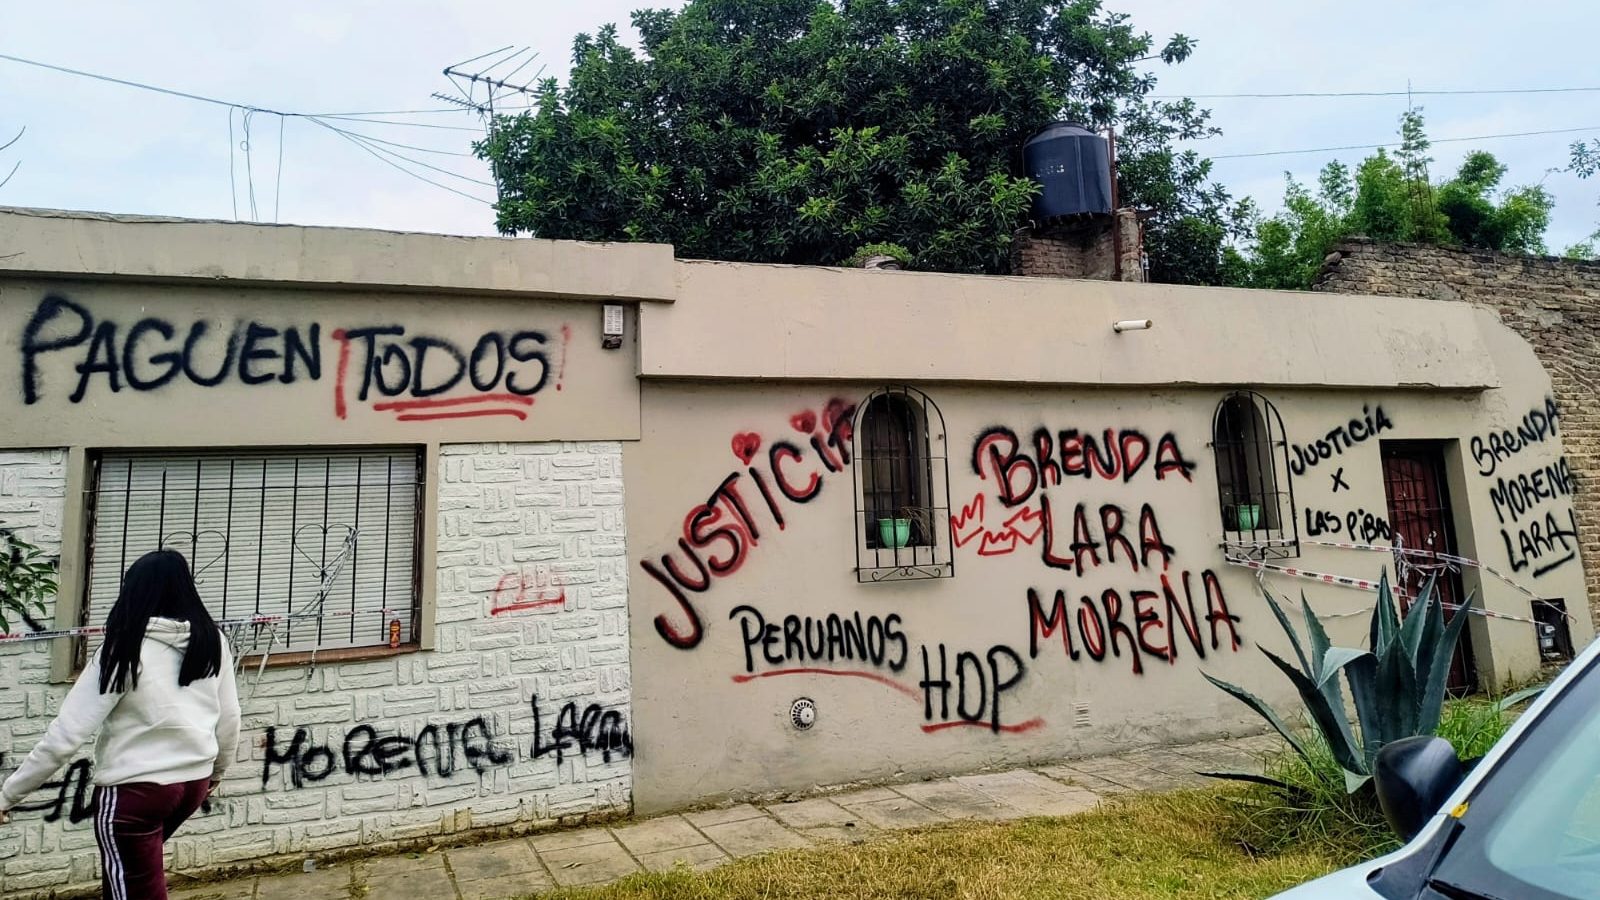 PAGUEN ¡TODOS!
JUSTICIA
BRENDA
LARA
MORENA
PERUANOS
HDP
MORENA LARA
JUSTICIA
X
LAS PIBAS
BRENDA
MORENA
LARA!